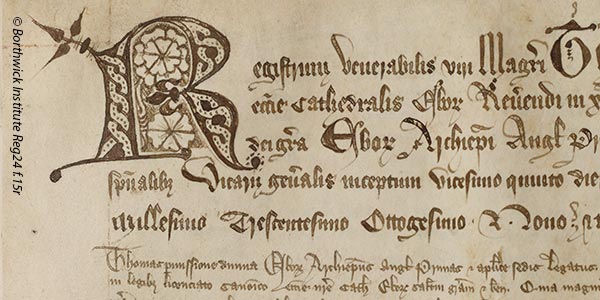 © Borthwick Institute Reg24 f.15r
Registrum Venerabilis viri Magri T
eccie Cathedralis Ebor Reverendi in x
dei gra Ebor Archiepi Angl Pri
spualibz Vicarii gen'alis inceptum vicesimo quinto die
millesimo Trescentesimo Octogesimo Nono
Thomas p missione divina Ebor Archiepus Angl Primas & aplice sedis legatus
in legibz licenciato Canonico eccie nre Cath Ebor saltm gram & ben